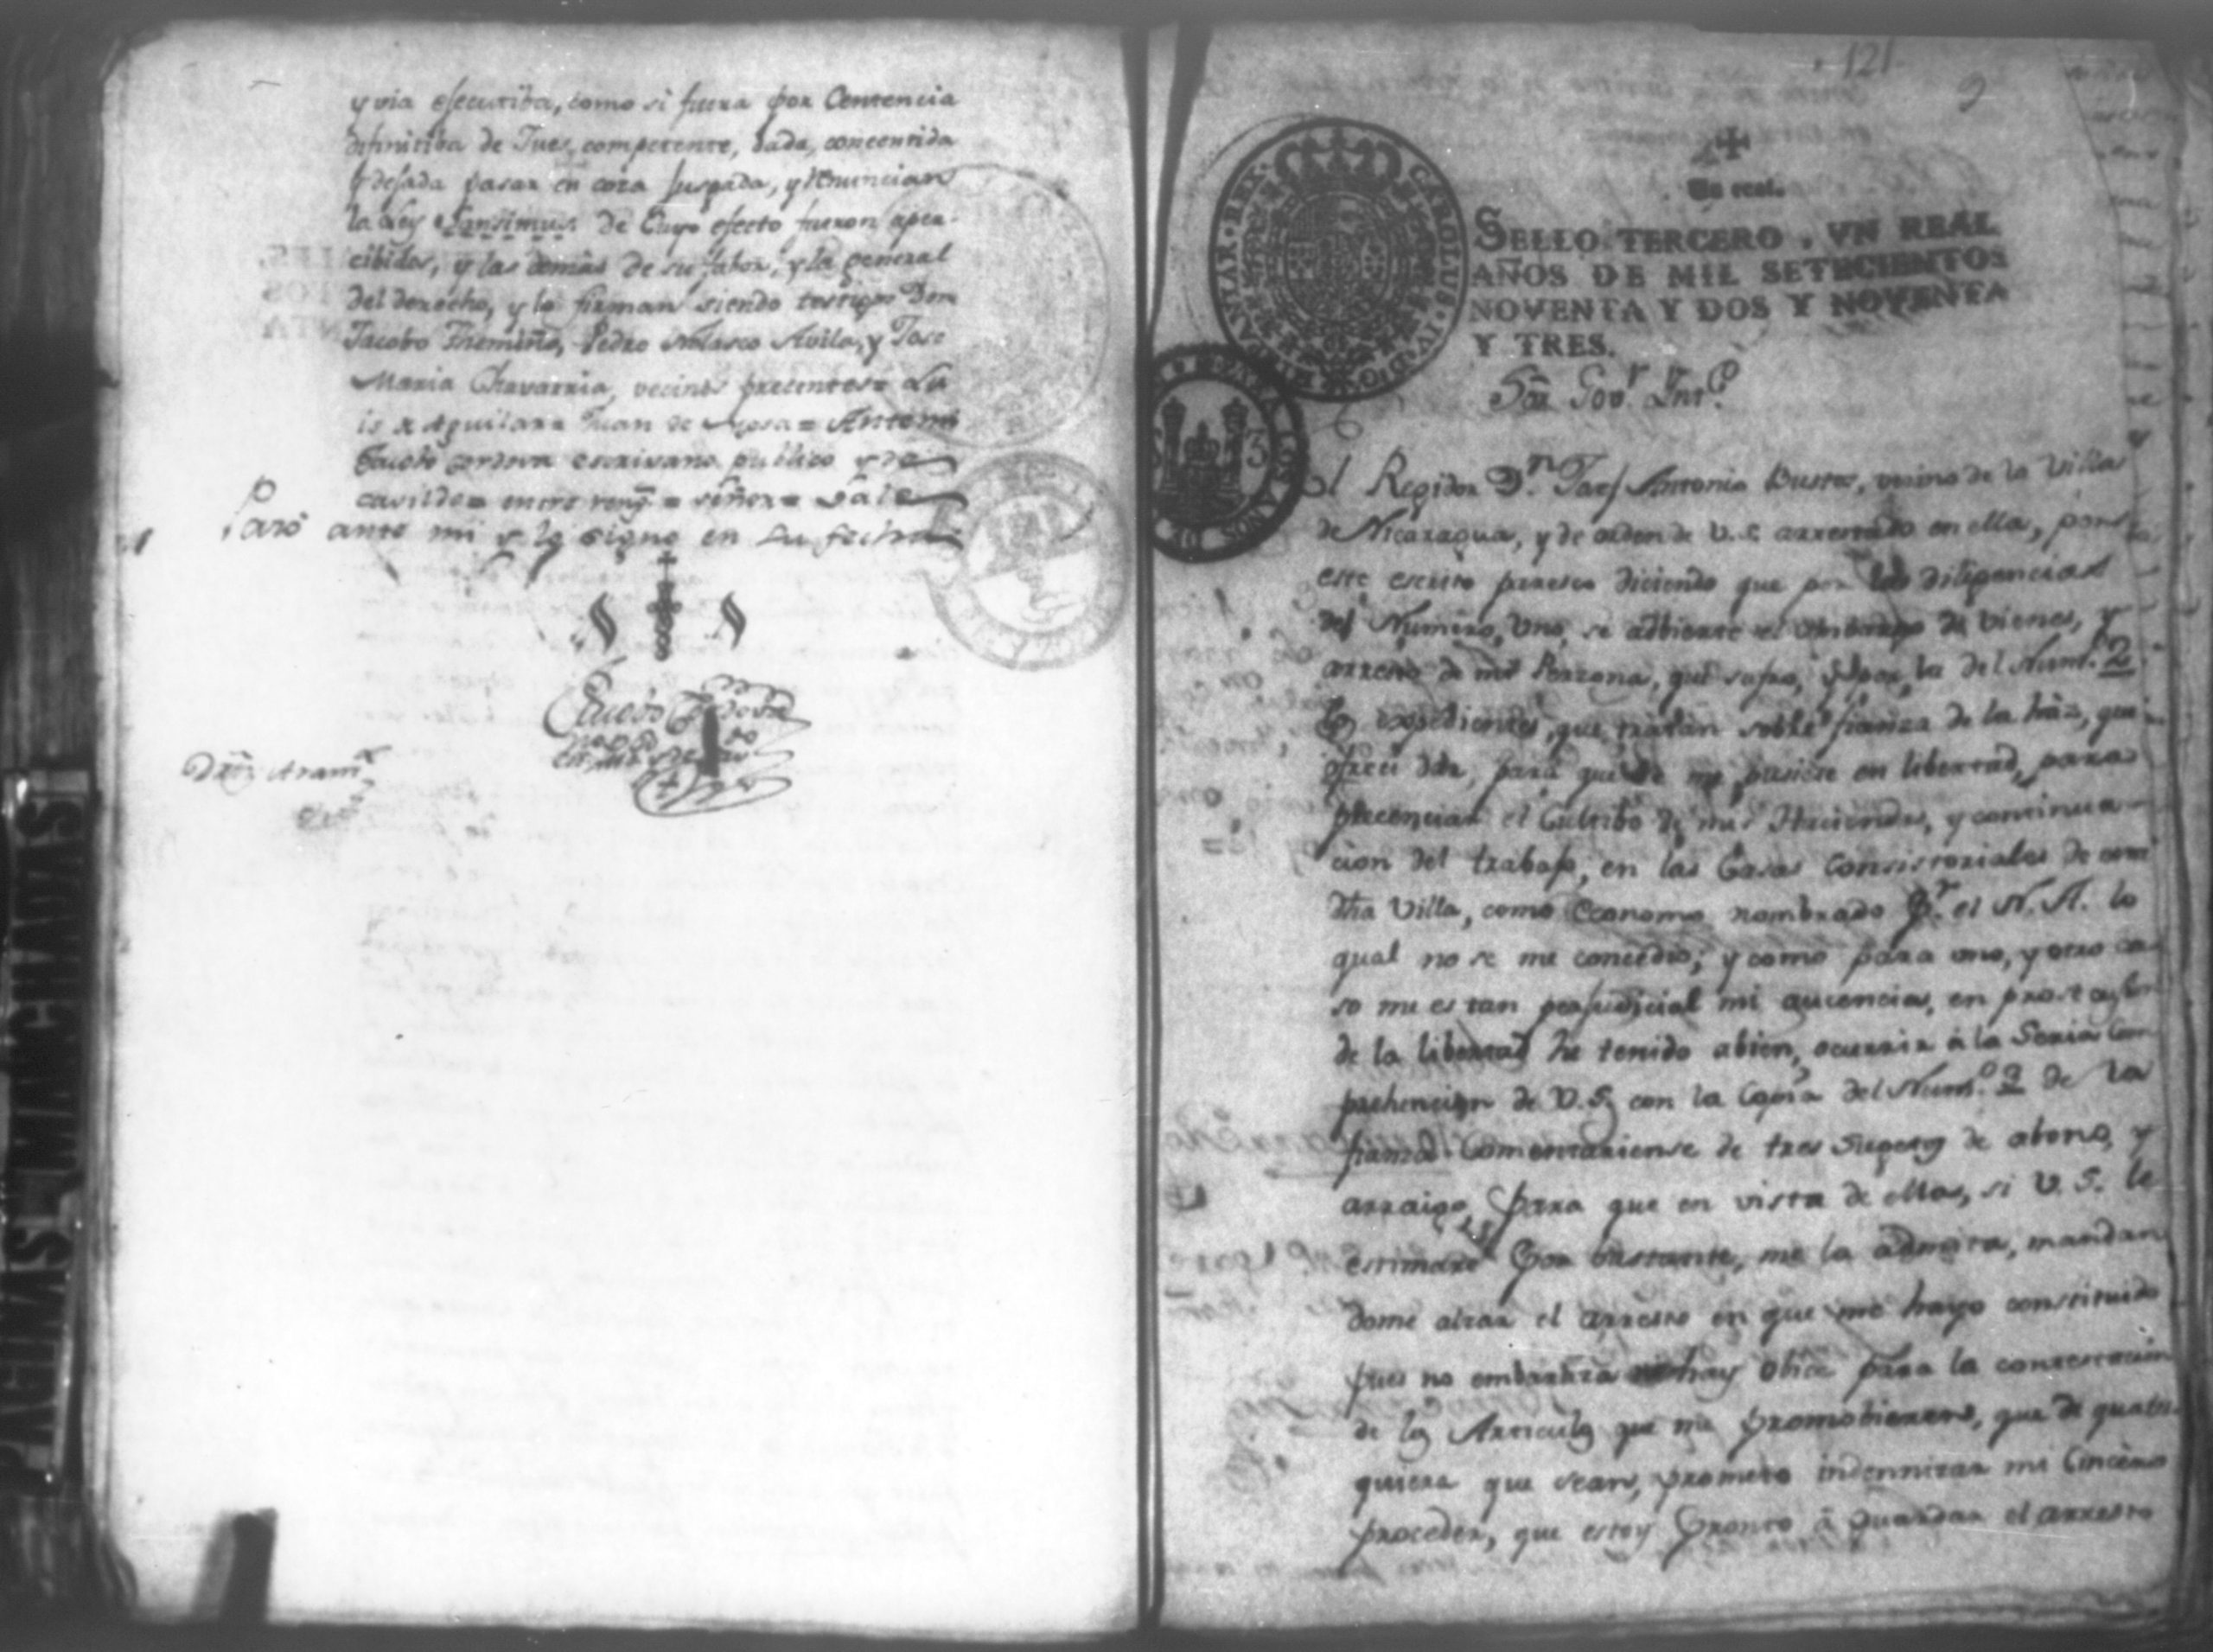 y via efecutiba, como si fuera por Centencia
difinitiba de Jues competente, dada, concentida
y defada pasar en coza Jusgada, y renuncian
la Ley Sansimus de Cuyo efecto fueron aper-
cibidos, y las demas de su fabor, y la general
del derecho, y lo firman siendo testigos Don
Jacobo Themiño, Pedro Nolasco Avila, y Jose
Maria Chavarria, vecinos precentes= Lu
is de Aguilar= Juan de = Antemi
escrivano publico y de
cavildo= entre rengs = señor= Vale
Pasó ante mi y lo signo en su fecha
Dros Aranl
121
9
Un real.
SELLO TERCERO, VN REAL
AÑOS DE MIL SETECIENTOS
NOVENTA Y DOS Y NOVENTA
Y TRES.
CAROLUS IV D G HISPANIAR REX
Sor Govr Inte
El Regidor Dn Jose Antonio Bustos, vecino de la Villa
de Nicaragua, y de orden de V.S. arrestado en ella, por
este escrito paresco diciendo que por las diligencias
del Numero, Uno, se adbierte el embargo de vienes, y
arresto de mi Perzona, que sufro, y por la del Numo 2
los expedientes, que tratan sobre fianza de la haz, que
ofreci dar, para que se me pusiese en libertad, para
precenciar el Cultibo de mis Haciendas, y continua-
cion del trabajo, en las Casas Consistoriales de
dha Villa, como Economo nombrado pr el N. A. lo
qual no se me concedio; y como para uno, y otro ca-
so me es tan perjudicial mi aucencia, en
de la libertad he tenido abien, ocurrir á la Seria Com
prehencion de V.S. con la Copia del Numo 2 de la
fianza Comentariense de tres Sugetos de abono, y
arraigo, para que en vista de ellas, si V.S. la
estimare por bastante, me la admita, mandan
dome alzar el arresto en que me hayo constituido
pues no embaraza ni hay obice para la contestacion
de los Articulos que me promobieren, que de quales
quiera que sean, prometo indemnizar mi Cincero
proceder, que estoy pronto á guardar el arresto